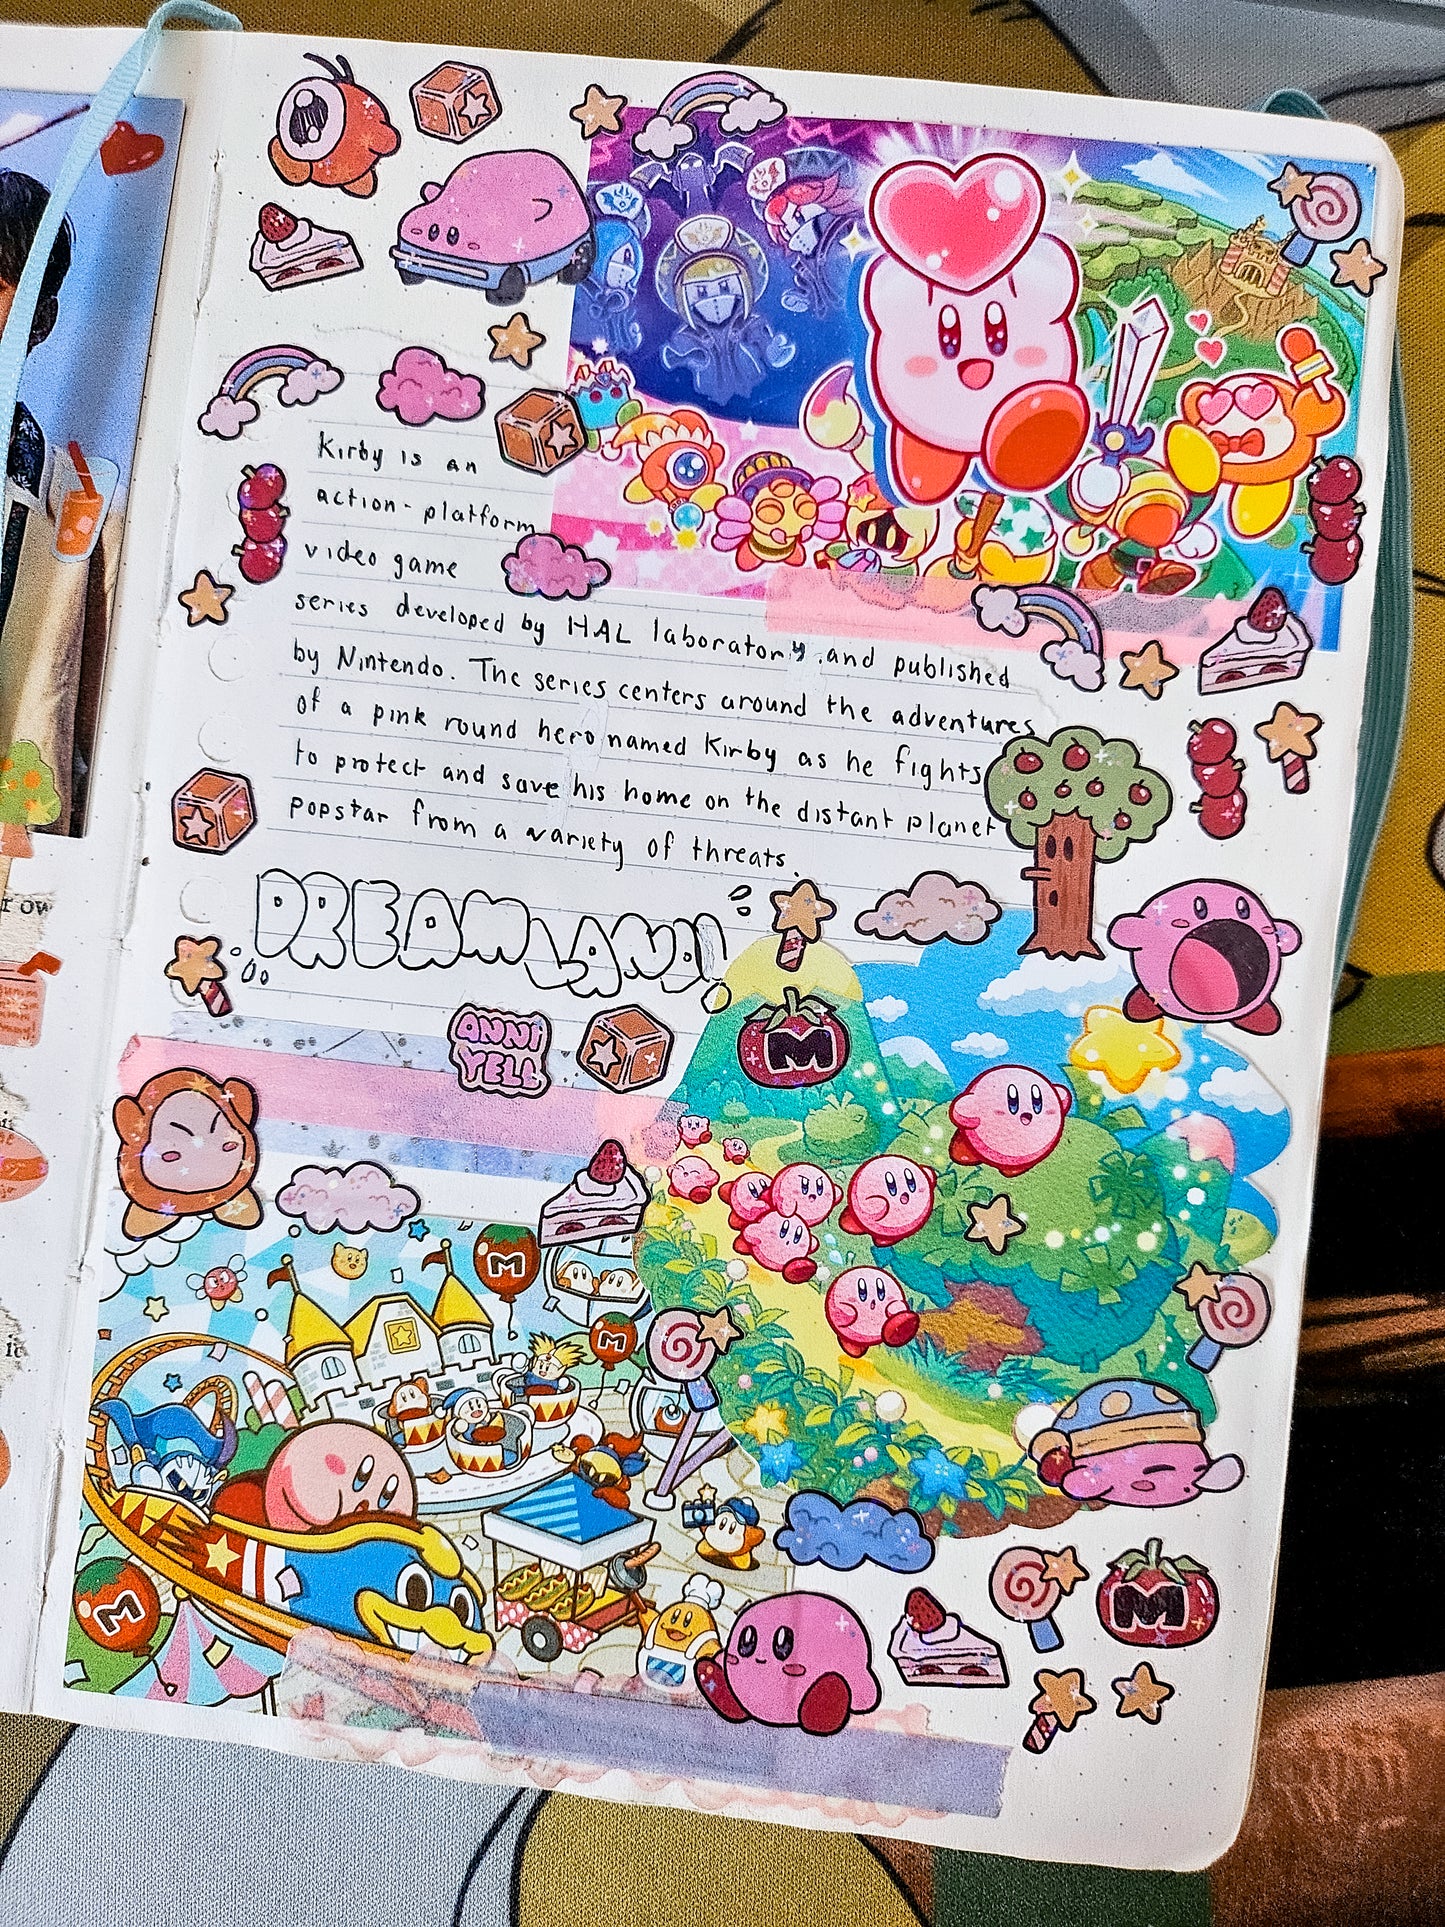 Kirby is an
action-platform
video game
series developed by HAL laboratory and published
by Nintendo. The series centers around the adventures
of a pink round hero named Kirby as he fights
to protect and save his home on the distant planet
popstar from a variety of threats.
DREAM LAND!
M
ANNI
YELL
M
M
M
M
r ow